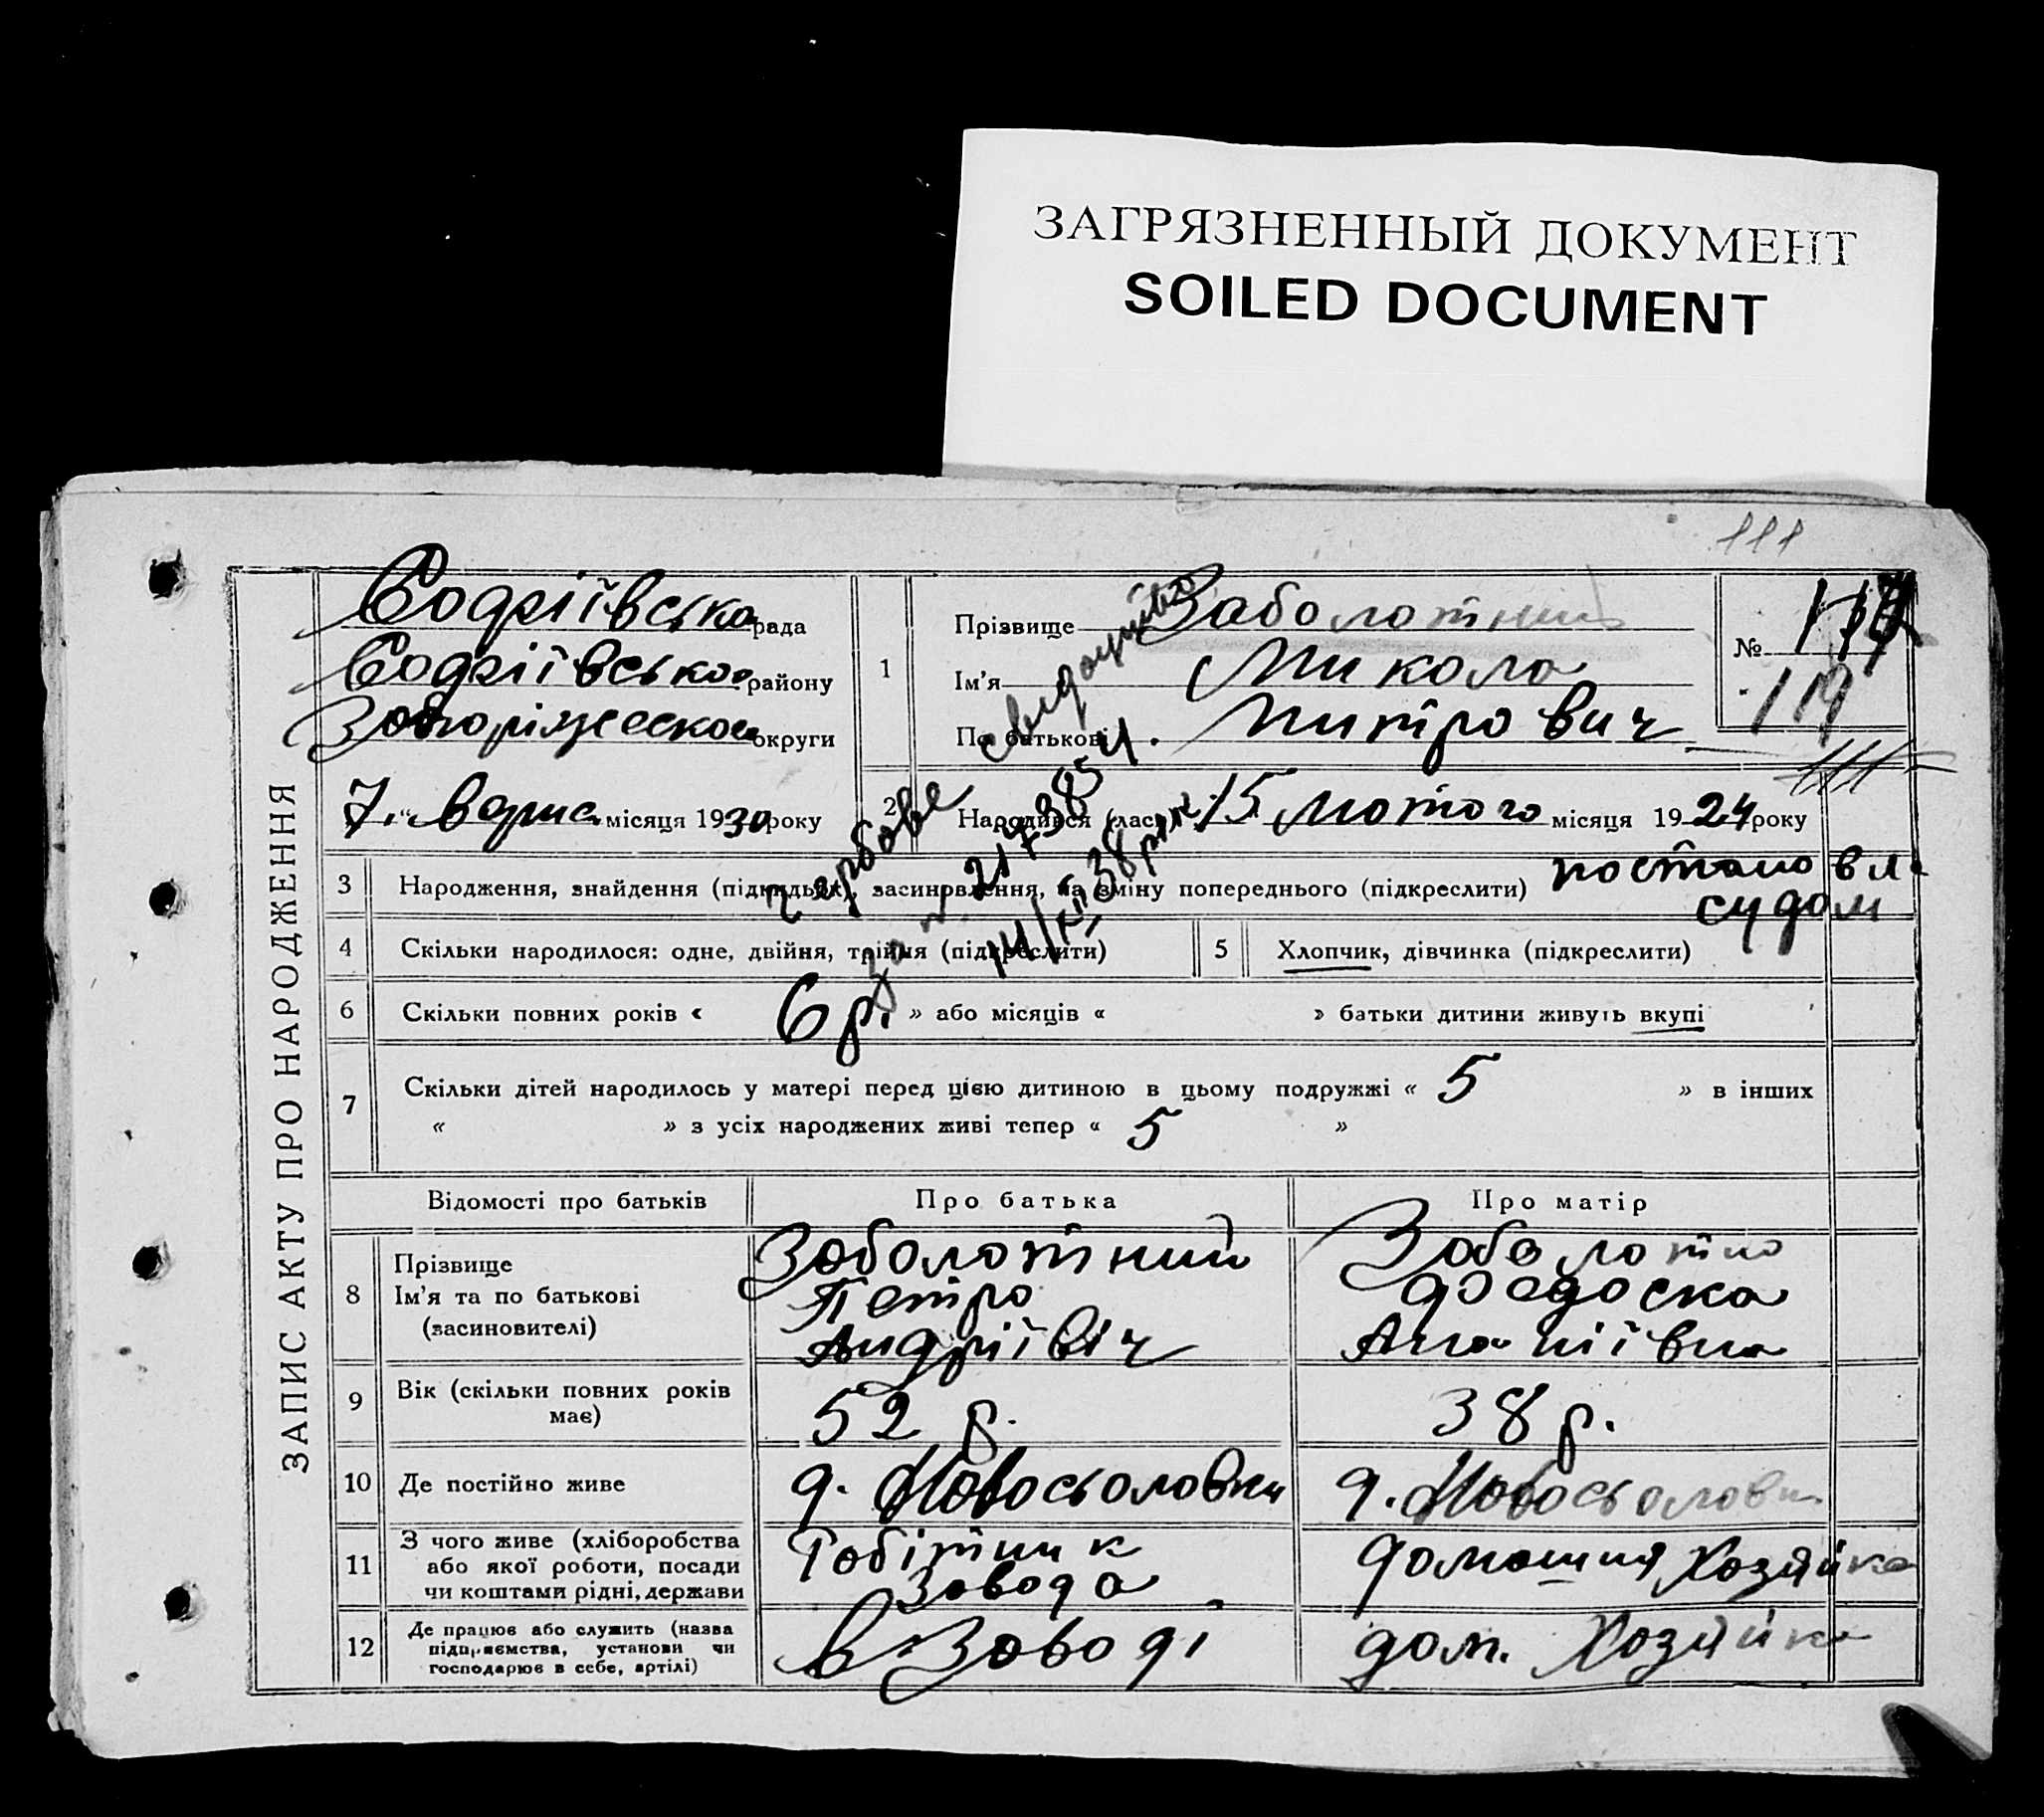 ЗАГРЯЗНЕННЫЙ ДОКУМЕНТ
SOILED DOCUMENT
111
ЗАПИС АКТУ ПРО НАРОДЖЕННЯ
Софіївська рада
Софіївського району
округи
7 " місяця 1930 року
1
Прізвище Заболотний
Ім'я Микола
По батькові Питрович
№
119
2 Народився (лась) 15 Лютого місяця 1924 року
гербове свидоцтво
217385
3 Народження, знайдення (підкидьки), засиновлення, на зміну попереднього (підкреслити) постановл.
судом
4 Скільки народилося: одне, двійня, трійня (підкреслити)
5 Хлопчик, дівчинка (підкреслити)
6 Скільки повних років « 6 р. » або місяців « » батьки дитини живуть вкупі
7 Скільки дітей народилось у матері перед цією дитиною в цьому подружжі « 5 » в інших
« » з усіх народжених живі тепер « 5 »
Відомості про батьків Про батька Про матір
8 Прізвище Заболотний Заболотна
Ім'я та по батькові Петро Федоска
(засиновителі) Андріївіч Ананіївна
9 Вік (скільки повних років має) 52 р. 38 р.
10 Де постійно живе д. Новосьоловки д. Новосьоловки
11 З чого живе (хліборобства Робітник домашня Хозяйка
або якої роботи, посади Завода
чи коштами рідні, держави
12 Де працює або служить (назва в Заводі дом. Хозяйка
підприємства, установи чи
господарює в себе, артілі)